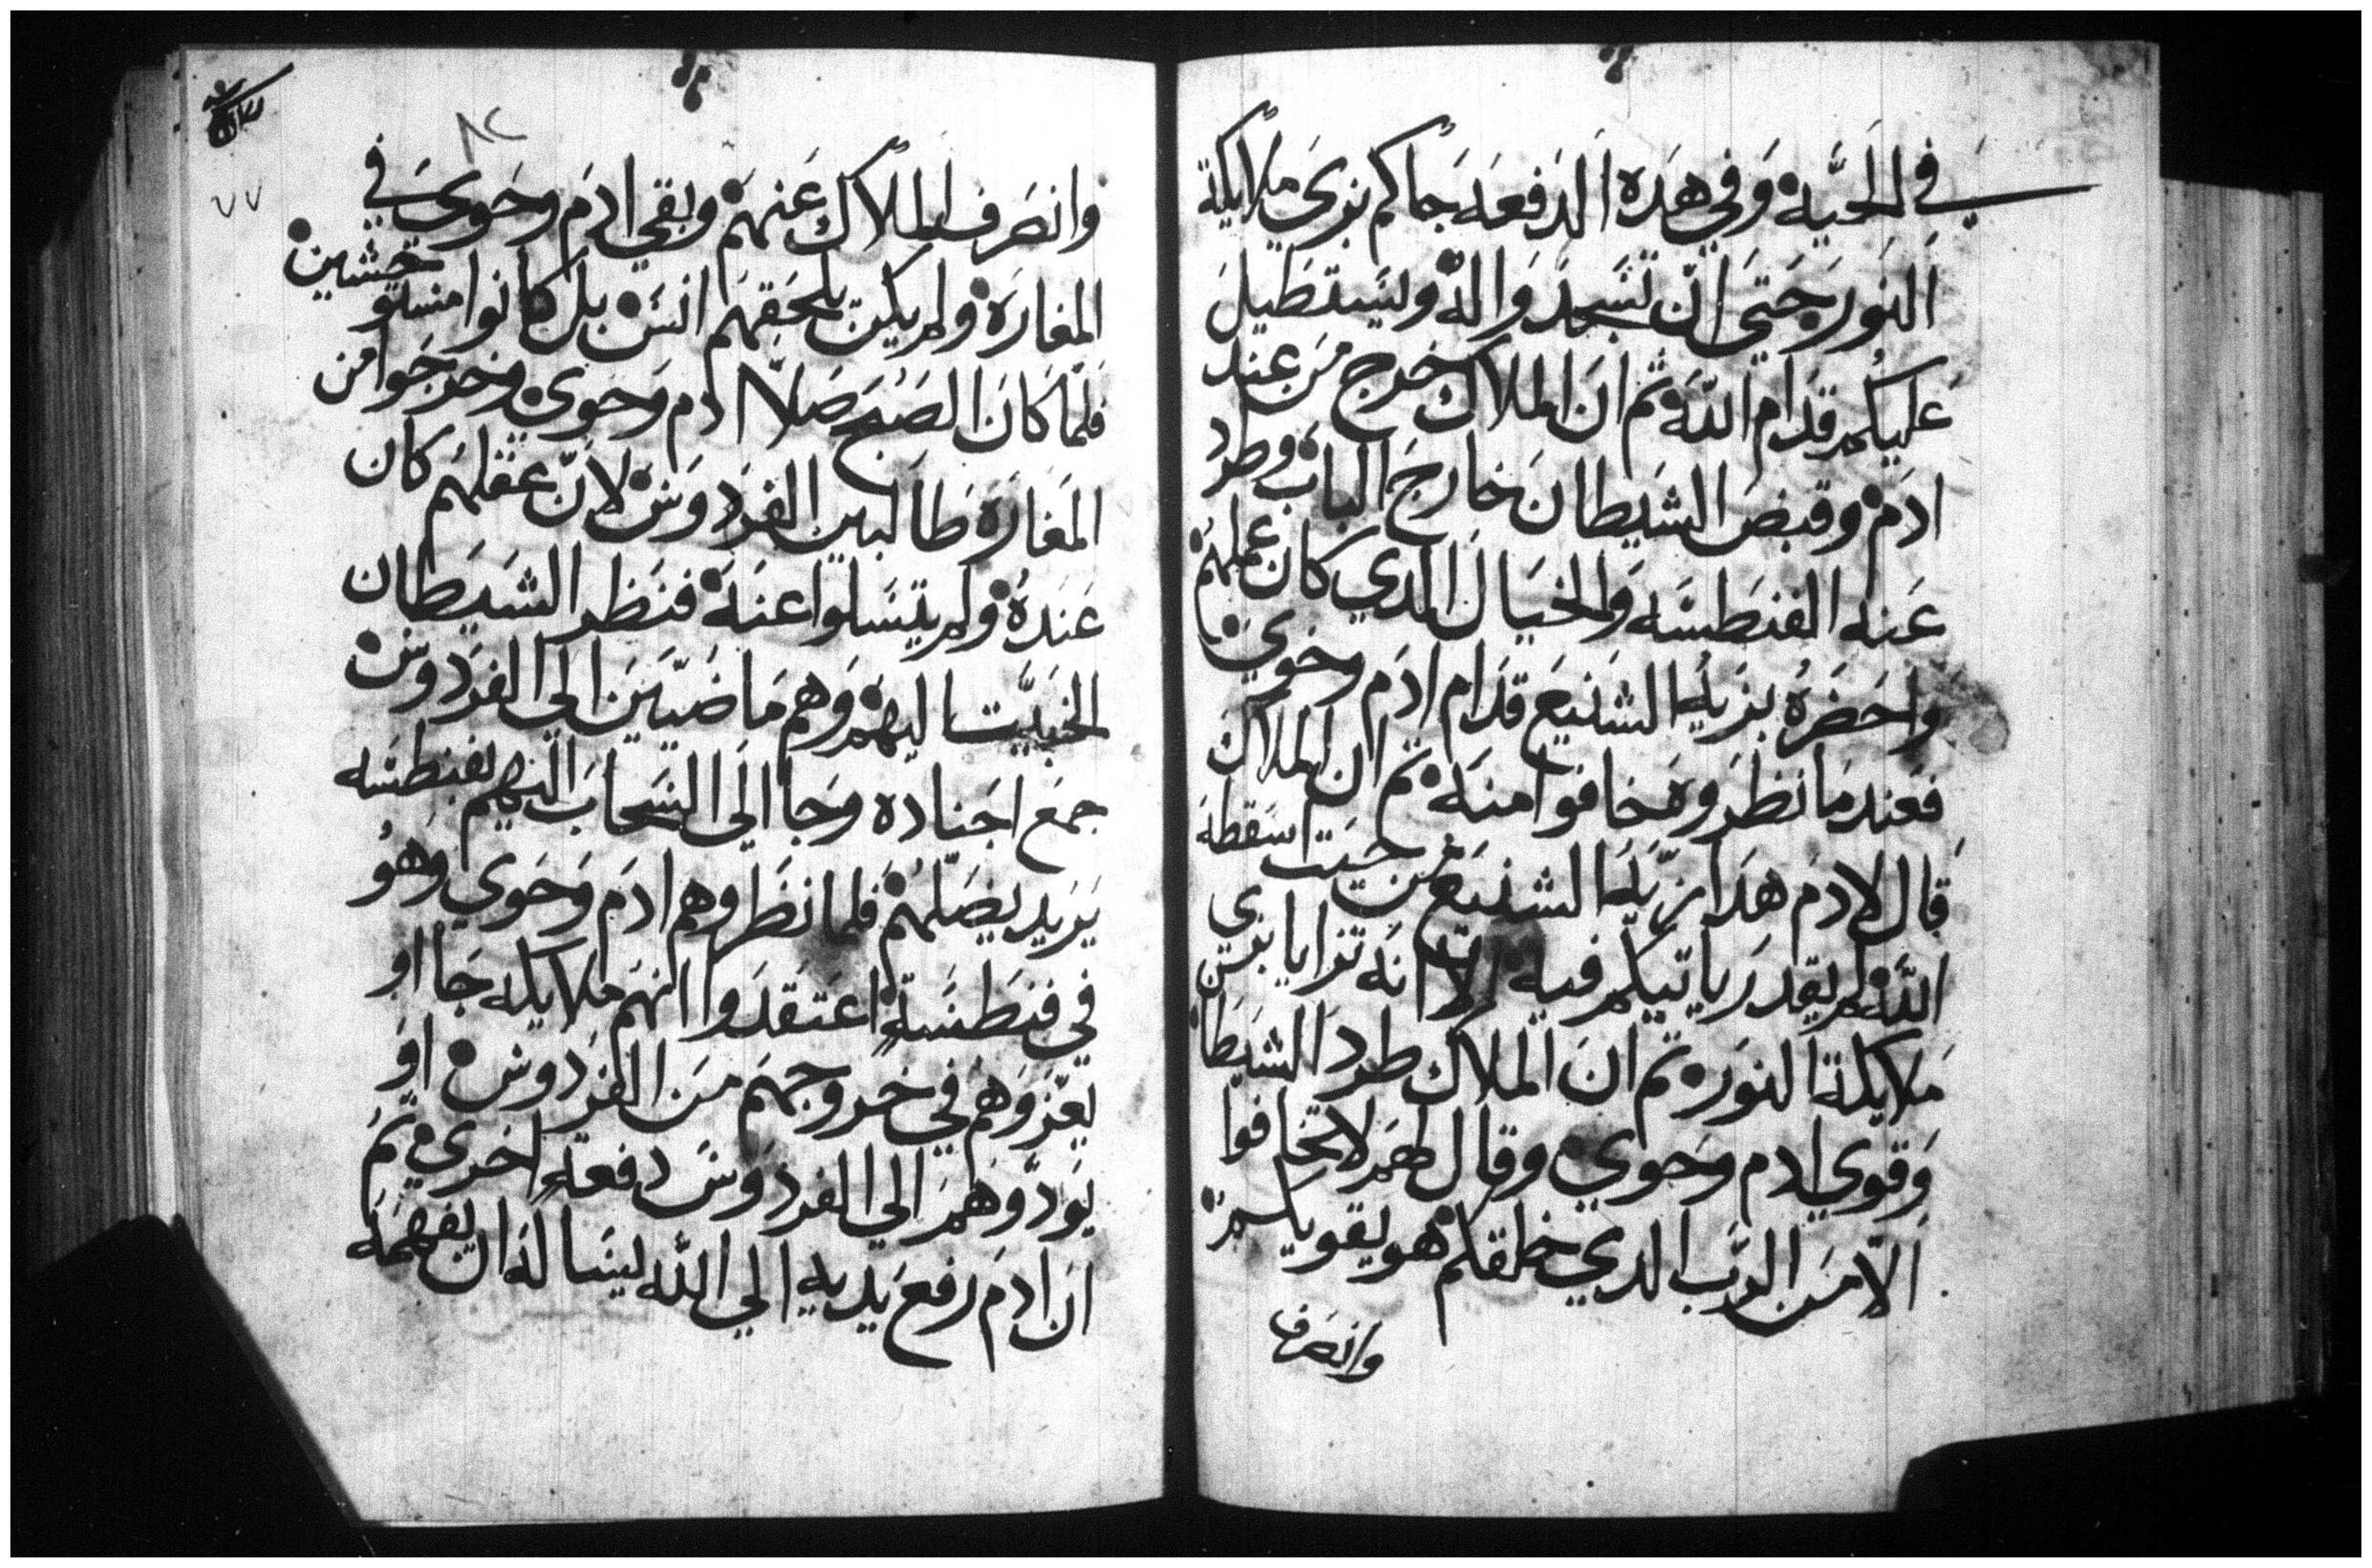 في الحَيَّه وَفي هَدَه الدَفعَه جَاكم بزي ملايكة
النَور حَتي ان تسَجدَوا لهُ وليسَتطيلَ
عَليكُم قدَام اللّه ثم انَ الملاك خرج مَن عِند
ادَم وقبضَ الشيَطانَ خارجَ البابَ وطرد
عَنه الفنطسَه وَالخيَال الدي كان عملهُم
واحَضَرهُ بزيه الشنيع قدَام ادَم وحَوي
فعَند مَا نظرَوه خافوا منهَ ثم ان الملاك
قَال لادمَ هَدَا زيَّه الشنيَع مُن حَيت اسَقطهَ
اللّه لم يقدرَ ياتيكم فيه الا انهَ تزايا بزي
مَلايكة النوَر ثم انَ الملاك طرد الشيَطان
وَقوي ادم وحَوي وقال لهَم لا تخافوا
الاّ مَن الرَب الدي خلقكم هو يقويكم
وانصَرف
٨٢
٧٧
وانصَرف الملاك عَنهمْ وبقي ادَم وحَوي في
المغارَة ولم يكن يلحَقهَم انسَ بل كانوا مستوحشين
فلمَا كانَ الصَبح صَلا ادم وَحَوي وخرجَوا من
المَغارَة طَالبين الفرَدوَسَ لانّ عقلهُم كان
عَندهُ ولم يتسَلوا عنهَ فنَظر الشَيَطان
الخبيَّت اليهمْ وَهم مَاضَيّينَ الي الفرَدوَسَ
جمعَ اجَناده وَجا الي السَحابَ اليهم بفنطسَه
يَريَد يضَلهُمْ فلما نظَروهم ادمَ وَحَوي وَهوُ
في فنطسَةٍ اعَتقدَوا انهَم ملايكه جَا او
يعَزوَهُم في خروجهَم مَن الفرَدوسَ او
يَودّوهَم الي الفردوَسَ دفعةٍ اخَري ثمَ
انَ ادمَ رفعَ يَديه الي اللّه ليسَالهَ ان يفهمَه